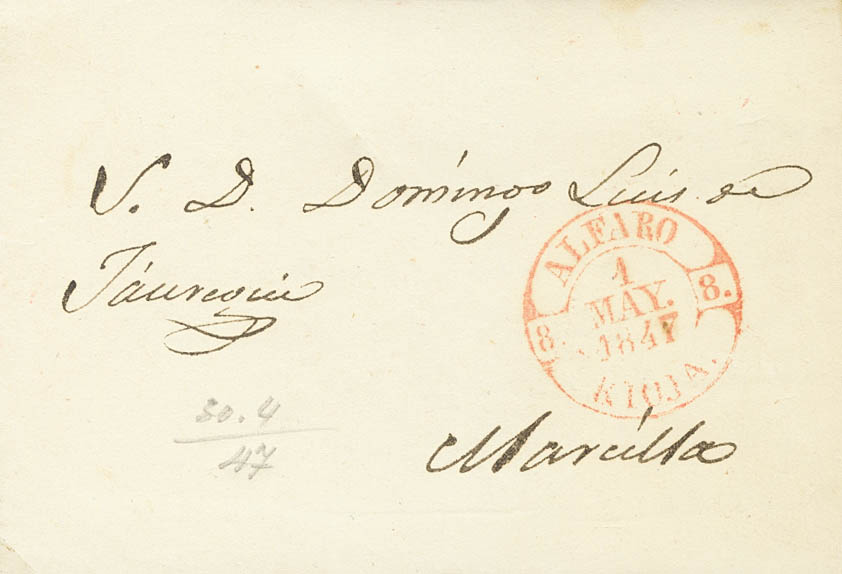 S. D. Domingo Luis de
Jáuregui
ALFARO
1
MAY.
1847
8. 8.
RIOJA.
30.4
47
Marcilla